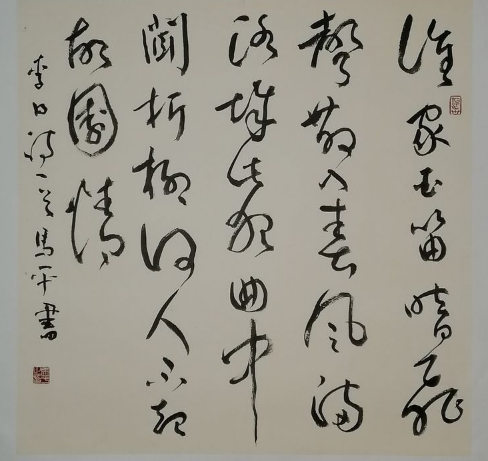 谁家玉笛暗飛
聲散入春风满
洛城此夜曲中
闻折柳何人不起
故園情
李白诗一首馬一平書